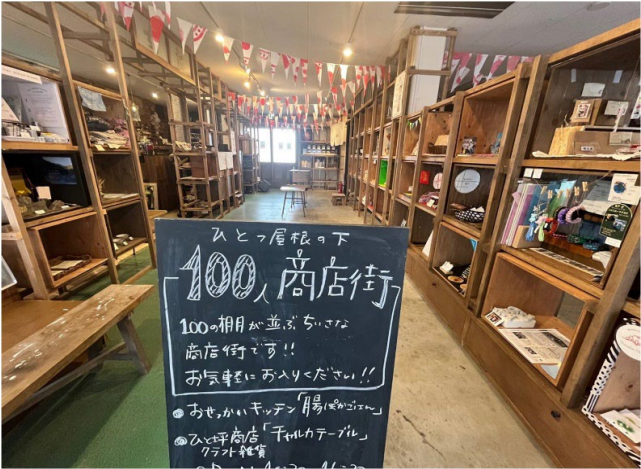 ひとつ屋根の下
100人商店街
100の棚が並ぶちいさな
商店街です!!
お気軽にお入りください!!
おせっかいキッチン「腸ぽかごはん」
ひと坪商店「チャルカテーブル」
クラフト雑貨